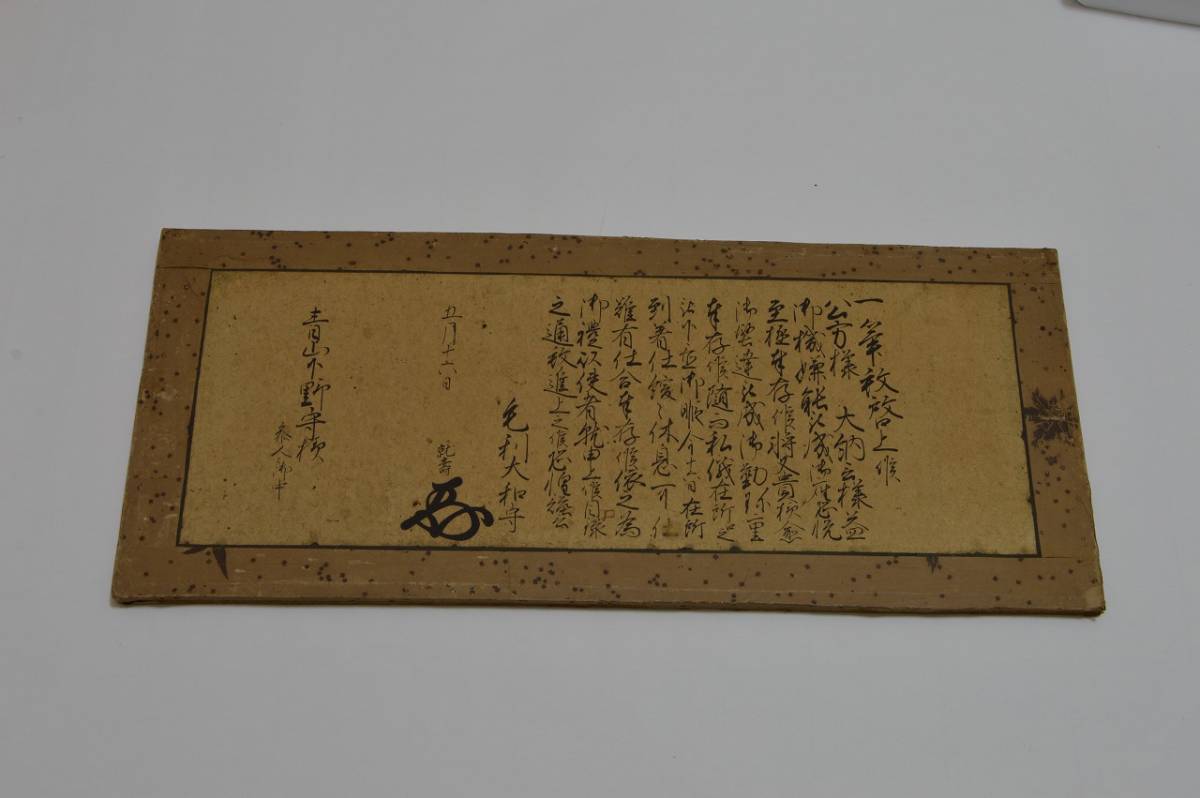 一筆致啓上候
公方様 大納言様益
御機嫌能被成御座恐悦
至極奉存候将又貴様愈
御堅達被成御勤珍重
奉存候随而私儀在所之
被下置御暇今十一日在所
到着仕緩々休息可仕
難有仕合奉存候依之為
御禮以使者就申上候目録
之通致進上之候恐惶謹言
毛利大和守
五月十六日
青山下野守様
参人々御中